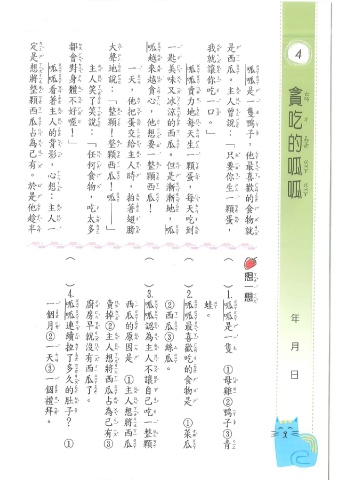 4
貪吃的呱呱
年 月 日
呱呱是一隻鴨子，他最喜歡的食物就
是西瓜。主人曾說：「只要你生一顆蛋，
我就讓你吃一口。」
呱呱賣力地每天生一顆蛋，每天吃到
一匙美味又冰涼的西瓜。但是漸漸地，呱
呱越來越貪心，他想要一整顆西瓜！
一天，他把蛋交給主人時，拍著翅膀
大聲地說：「整顆、整顆西瓜！呱！」
主人笑了笑說：「任何食物，吃太多
都會對身體不好喔！」
呱呱看著主人的背影，心想：主人一
定是想將整顆西瓜占為己有。於是他趁半
想一想
（ ）1.呱呱是一隻 ①母雞②鴨子③青
蛙。
（ ）2.呱呱最喜歡吃的食物是 ①菜瓜
②西瓜③絲瓜。
（ ）3.呱呱認為主人不讓自己吃一整顆
西瓜的原因是 ①主人想將西瓜
賣掉②主人想將西瓜占為己有③
廚房早就沒有西瓜了。
（ ）4.呱呱連續拉了多久的肚子？ ①
一個月②一天③一個禮拜。